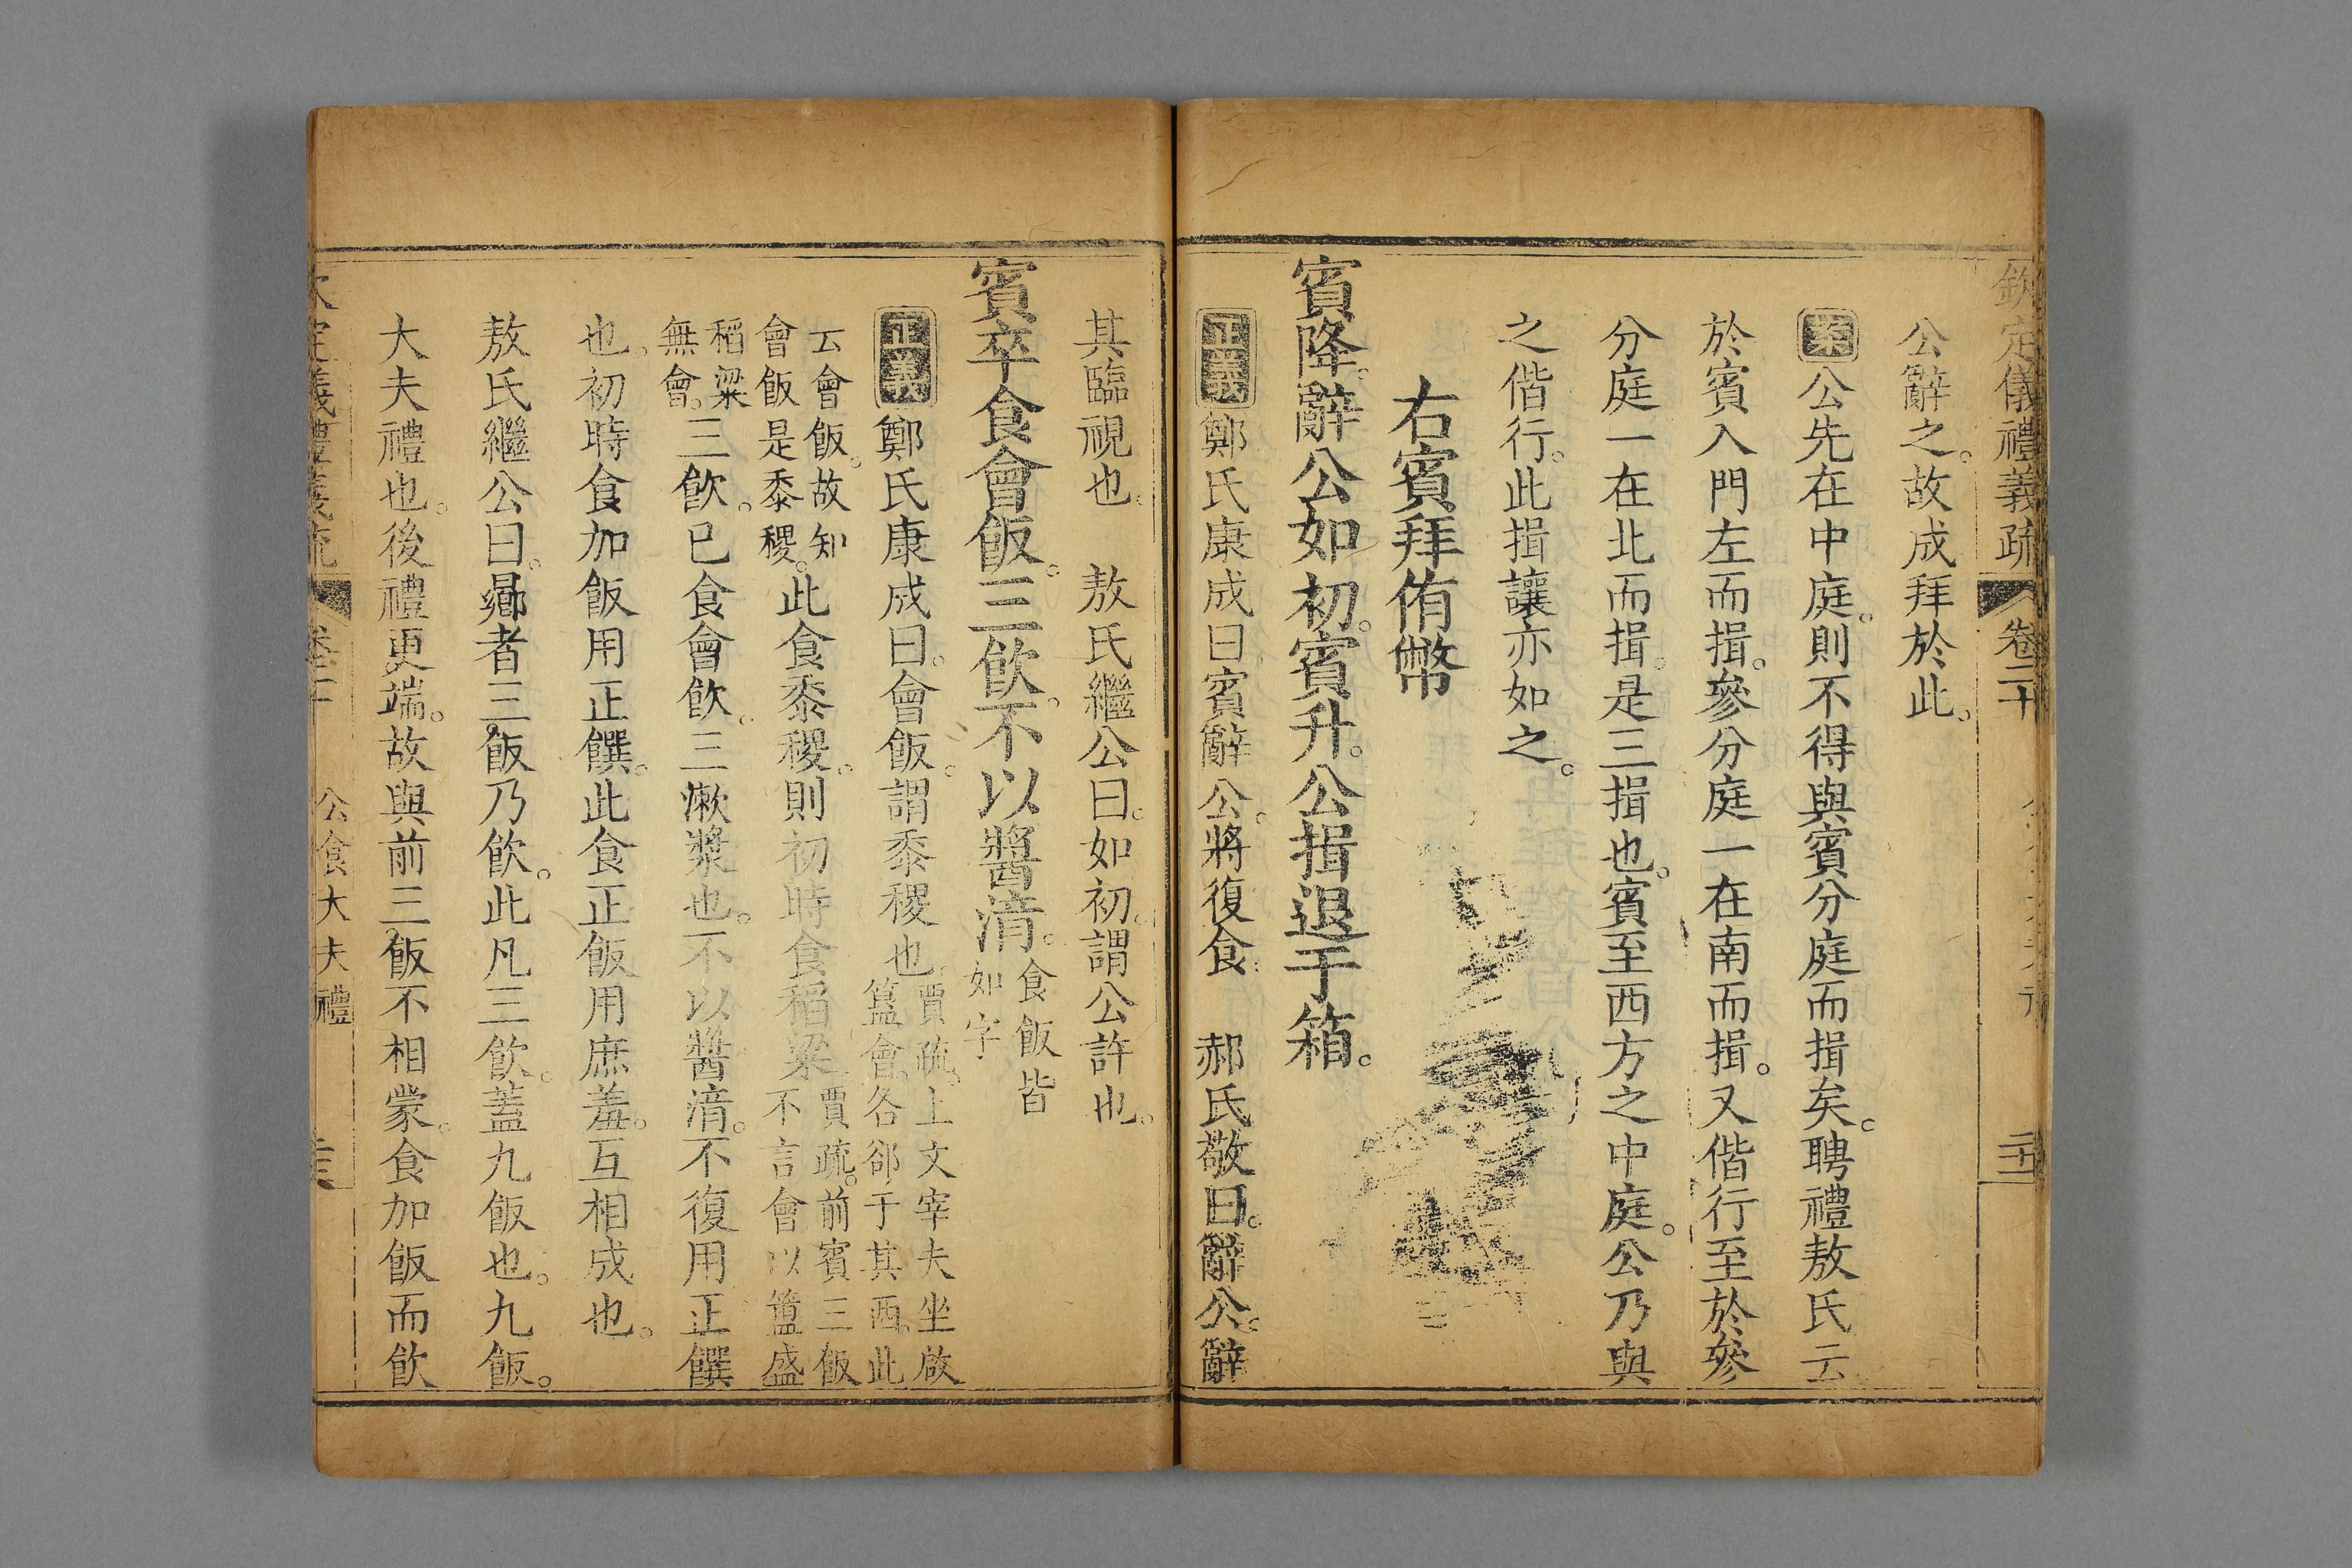 欽定儀禮義疏 卷二十
公辭之。故成拜於此。
案公先在中庭。則不得與賓分庭而揖矣。聘禮敖氏云
於賓入門左而揖。參分庭一在南而揖。又偕行至於參
分庭一在北而揖。是三揖也。賓至西方之中庭。公乃與
之偕行。此揖讓亦如之。
右賓拜侑幣
賓降。辭公如初。賓升。公揖退于箱。
正義鄭氏康成曰。賓辭公。將復食。 郝氏敬曰。辭公。辭
其臨視也。 敖氏繼公曰。如初。謂公許也。
賓卒食會飯。三飲。不以醬湇。食飯皆
如字
正義鄭氏康成曰。會飯。謂黍稷也。賈疏。上文宰夫坐啟
簋會。各郤于其西。此
云會飯。故知
會飯是黍稷。此食黍稷。則初時食稻粱。賈疏。前賓三飯
不言會以簠盛
稻粱
無會。三飲。已食會飲。三漱漿也。不以醬湇。不復用正饌
也。初時食加飯用正饌。此食正飯用庶羞。互相成也。
敖氏繼公曰。曏者三飯乃飲。此凡三飲。蓋九飯也。九飯。
大夫禮也。後禮更端。故與前三飯不相蒙。食加飯而飲
定儀禮義疏 卷二十 公食大夫禮